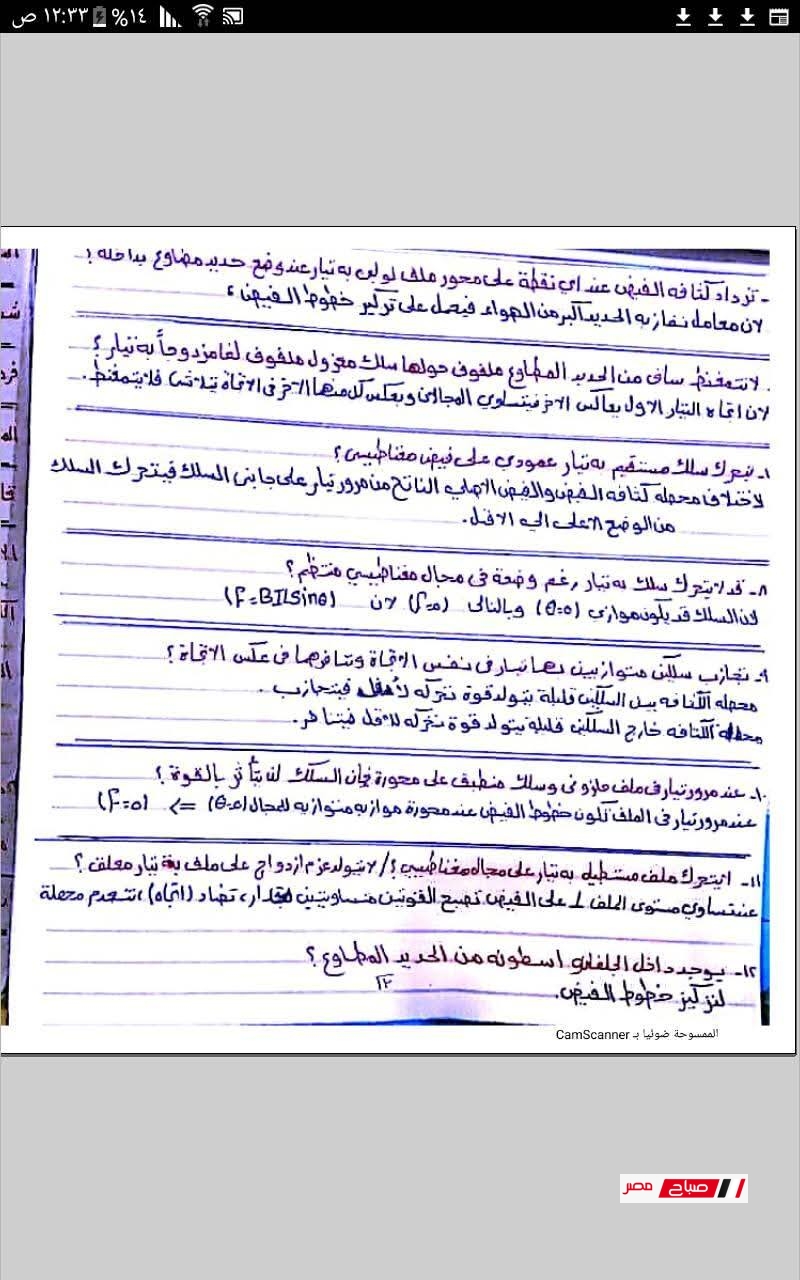 ١٢:٣٣ ص ١٤%
- تزداد كثافه الفيض عند اي نقطة على محور ملف لولبى به تيار عند وضع حديد مطاوع بداخله ؟
لان معامل نفازيه الحديد اكبر من الهواء فيعمل على تركيز خطوط الفيض
لا تتمغنط ساق من الحديد المطاوع ملفوف حولها سلك معزول ملفوف لفا مزدوجاً به تيار ؟
لان اتجاه التيار الاول يعاكس الاخر فيتساوي المجالين ويعكس كل منهما الآخر فى الاتجاة فلا يتمغنط.
يتحرك سلك مستقيم به تيار عمودي على فيض مغناطيسي ؟
لاختلاف محصله كثافه الفيض والفيض الاصلي الناتج من مرور تيار على جابنى السلك فيتحرك السلك
من الوضع الاعلى الي الاقل.
٨- قد لا يتحرك سلك به تيار رغم وضعة فى مجال مغناطيسي منتظم ؟
لان السلك قد يكون موازي (θ=0) وبالتالى (F=0) لان (F=BILSinθ)
٩- تجازب سلكين متوازيين بهما تيار فى نفس الاتجاة وتنافرهما فى عكس الاتجاة ؟
محصله الكثافه بين السلكين قليلة يتولد قوة تحركه للأقل فيتجازب.
محصله الكثافه خارج السلكين قليلة يتولد قوة تحركه للاقل فيتنافر.
١٠- عند مرور تيار فى ملف حلزونى وسلك منطبق على محورة فإن السلك لن يتأثر بالقوة ؟
عند مرور تيار فى الملف تكون خطوط الفيض عند محورة موازيه متوازيه للمجال (θ=0) => (F=0)
١١- لا يتحرك ملف مستطيل به تيار على مجاله مغناطيسي ؟/ لا يتولد عزم ازدواج على ملف به تيار معلف ؟
مستوى الملف ⊥ على الفيض تصبح القوتين متساويتين مقدار، تضاد (اتجاه)، تنعدم محصلة
١٢- يوجد داخل الجلفانو اسطونه من الحديد المطاوع ؟
لتركيز خطوط الفيض.
١٢
الممسوحة ضوئيا بـ CamScanner
صباح مصر